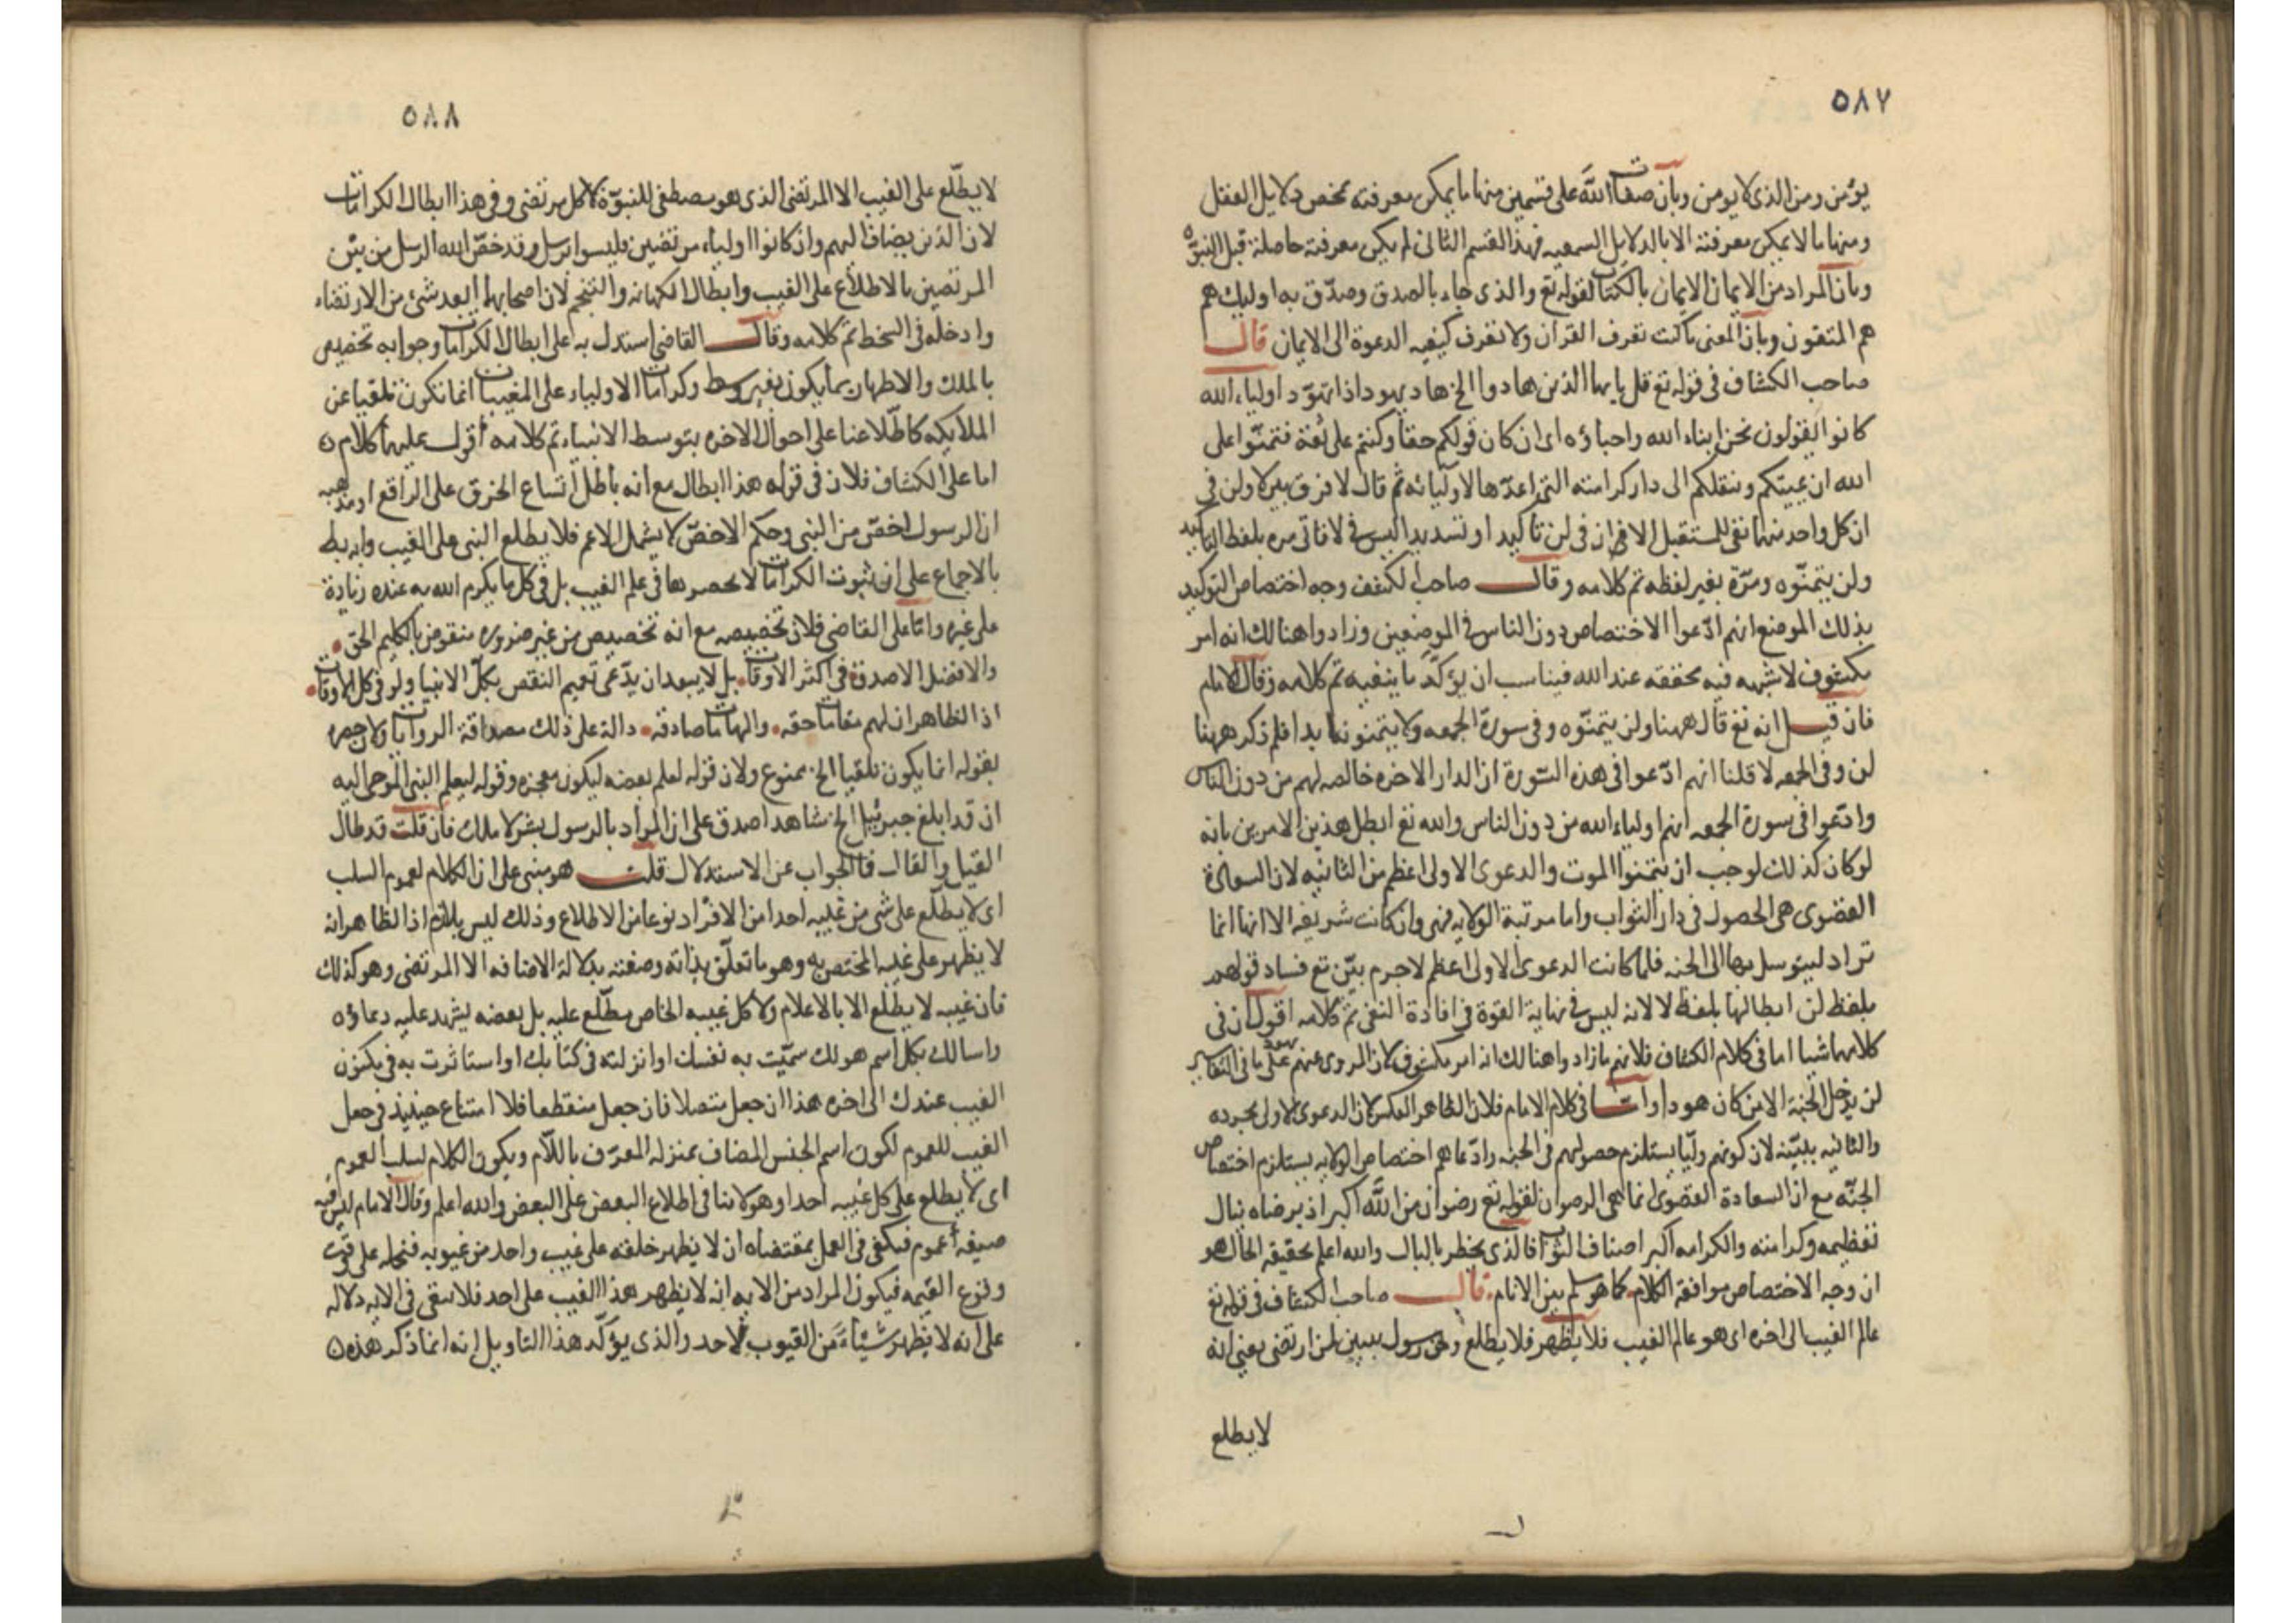 ٥٨٧
يؤمن ومن الذى لا يومن وبان صفات الله على قسمين منها ما يمكن معرفته بمحض دلايل العقل
ومنها ما لا يمكن معرفته الا بالدلايل السمعيه فهذا القسم الثانى لم يكن معرفته حاصلة قبل النبوة
وبان المراد من الايمان الايمان بالكتاب لقوله تع والذى جاء بالصدق وصدّق به اوليك هم
هم المتقون وبان المعنى ما كنت تعرف القران ولا تعرف كيفيه الدعوة الى الايمان قال
صاحب الكشاف فى قوله تع قل يايها الذين هادوا الخ هاد يهود اذا تهوّد اولياء الله
كانوا يقولون نحن ابناء الله واحباؤه اى ان كان قولكم حقا وكنتم على ثقة فتمنّوا على
الله ان يميتكم وينقلكم الى دار كرامته التى اعدّها لاوليائه ثم قال لا فرق بين لا ولن فى
ان كل واحد منهما نفى للمستقبل الا ان فى لن تاكيد او تشديدا ليس فى لا فاتى مره بلفظ التاكيد
ولن يتمنّوه ومرّة بغير لفظه تم كلامه وقال صاحب الكشف وجه اختصاص التوكيد
بذلك الموضع انهم ادّعوا الاختصاص دون الناس فى الموضعين وزادوا هنالك انه امر
مكشوف لا شبهه فيه محققه عند الله فيناسب ان يؤكّد ما ينفيه تم كلامه وقال الامام
فان قيل انه تع قال ههنا ولن يتمنّوه وفى سورة الجمعه ولا يتمنونه ابدا فلم ذكر ههنا
لن وفى الجمعه لا قلنا انهم ادّعوا فى هذه السّورة ان الدار الاخره خالصه لهم من دون الناس
وادّعوا فى سورة الجمعه انهم اولياء الله من دون الناس والله تع ابطل هذين الامرين بانه
لو كان كذلك لوجب ان يتمنوا الموت والدعوى الاولى اعظم من الثانيه لان السعادة
القصوى هى الحصول فى دار الثواب واما مرتبة الولايه فهى وان كانت شريفه الا انها انما
تراد ليتوسل بها الى الجنه فلما كانت الدعوى الاولى اعظم لاجرم بيّن تع فساد قولهم
بلفظ لن ابطالها بلفظ لا لانه ليس فى نهاية القوة فى افادة النفى تم كلامه اقول ان فى
كلامهما شيا اما فى كلام الكشاف فلانهم ما زادوا هنالك انه امر مكشوف لان المروى عنهم على ما فى التفاسير
لن يدخل الجنة الا من كان هودا واما فى كلام الامام فلان الظاهر العكس لان الدعوى الاولى مجرده
والثانيه ببيّنة لان كونهم وليّا يستلزم حصولهم فى الجنه وادّعاهم اختصاص الولايه يستلزم اختصاص
الجنّه مع ان السعادة القصوى انما هى الرضوان لقوله تع رضوان من الله اكبر اذ برضاه ينال
تعظيمه وكرامته والكرامه اكبر اصناف الثواب فالذى يخطر بالبال والله اعلم بحقيقه الحال هو
ان وجه الاختصاص موافقة الكلام كما هو سلم بين الانام قال صاحب الكشاف فى قوله تع
عالم الغيب الى اخره اى هو عالم الغيب فلا يظهر فلا يطلع ومن رسول تبيين لمن ارتضى يعنى انه
لا يطلع
٥٨٨
لا يطّلع على الغيب الا المرتضى الذى هو مصطفى للنبوّة لا كل مرتضى وفى هذا ابطال الكرامات
لان الذين يضاف اليهم وان كانوا اولياء مرتضين فليسوا برسل وقد خصّ الله الرسل من بين
المرتضين بالاطلاع على الغيب وابطال الكهانه والتنجيم لان اصحابهما ابعد شئ من الارتضاء
وادخله فى السخط تم كلامه وقال القاضى استدل به على ابطال الكرامات وجوابه تخصيص
بالملك والاظهار بما يكون بغير وسط وكرامات الاولياء على المغيبات انما تكون تلقيا عن
الملايكه كاطّلاعنا على احوال الاخره بتوسط الانبياء تم كلامه اقول عليهما كلام
اما على الكشاف فلان فى قوله هذا ابطال مع انه باطل اتساع الخرق على الراقع او مذهبه
ان الرسول اخصّ من النبى وحكم الاخصّ لا يشمل الاعم فلا يطلع النبى على الغيب وابه بط
بالاجماع على ان ثبوت الكرامات لا يحصرها فى علم الغيب بل فى كل ما يكرم الله به عنده زيادة
على غيره وامّا على القاضى فلان تخصيصه مع انه تخصيص من غير ضروره منقوض بالكليم الحق
والافضل الاصدق فى اكثر الاوقات بل لا يبعد ان يدّعى تعميم النقص بكلّ الانبيا ولو فى كل الاوقات
اذ الظاهر ان لهم مقامات حقه والهامات صادقه دالة على ذلك مصداقة الروايات ولان حصره
بقوله انما يكون تلقيا الخ ممنوع ولان قوله لعلم بعضه ليكون معجزه وقوله ليعلم النبى الموحى اليه
ان قد ابلغ جبرئيل الخ شاهد اصدق على ان المراد بالرسول بشر لا ملك فان قلت قد طال
القيل والقال فما الجواب عن الاستدلال قلت هو مبنى على ان الكلام لعموم السلب
اى لا يطّلع على شى من غيبه احدا من الافراد نوعا من الاطلاع وذلك ليس بلازم اذ الظاهر انه
لا يظهر على غيبه المختص به وهو ما تعلّق بذاته وصفته بدلالة الاضافه الا المرتضى وهو كذلك
فان غيبه لا يطّلع الا بالاعلام ولا كل غيبه الخاص مطّلع عليه بل بعضه يشهد عليه دعاؤه
واسالك بكل اسم هو لك سمّيت به نفسك او انزلته فى كتابك او استاثرت به فى مكنون
الغيب عندك الى اخره هذا ان جعل متصلا فان جعل منقطعا فلا امتناع حينيذ فى جعل
الغيب للعموم لكون اسم الجنس المضاف بمنزله المعرّف باللّام ويكون الكلام لسلب العموم
اى لا يطلع على كل غيبه احدا وهو لا ينافى اطلاع البعض على البعض والله اعلم وقال الامام ليس فيه
صيغه عموم فيكفى فى العمل بمقتضاه ان لا يظهر خلقه على غيب واحد من غيوبه فنحمله على وقت
وقوع القيمه فيكون المراد من الايه انه لا يظهر هذا الغيب على احد فلا يبقى فى الايه دلاله
على انه لا يظهر شيئاء من الغيوب لاحد والذى يؤكّد هذا التاويل انه انما ذكر هذه